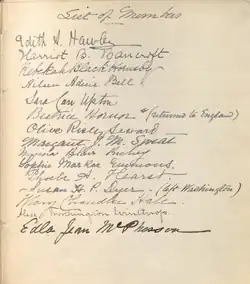 List of Members
Edith S. Hawley
Harriet B. Bancroft
Rebekah Black Hornsby
Helen Adine Bell
Sara Carr Upton
Beatrice * (returned to England)
Olive Risley Seward
Margaret J. M. Sweat
Virginia Blair
Sophie MarKoe Emmons
Phoebe A. Hearst
Susan H. P. Dyer - (left Washington)
Mary Chandler Hale
Winthrop
Edla Jean McPherson